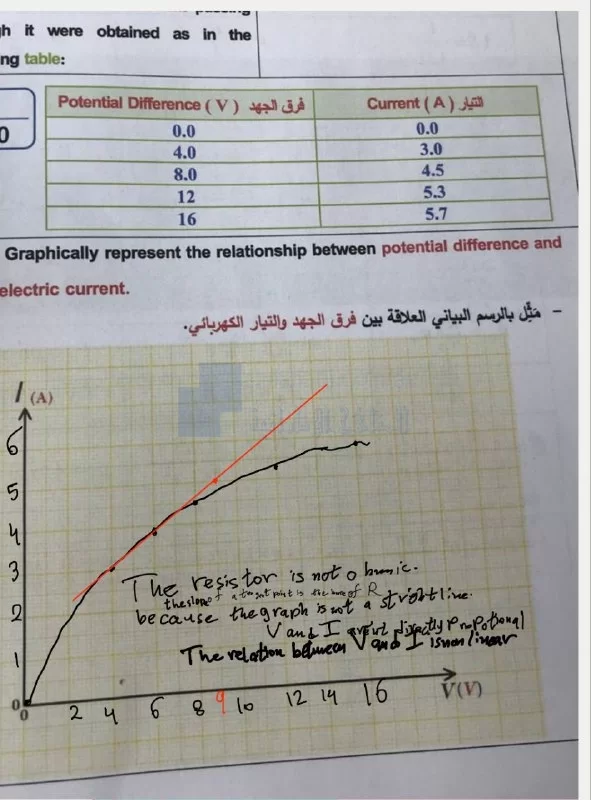 h it were obtained as in the
ng table:
0
Potential Difference ( V ) فرق الجهد
Current ( A ) التيار
0.0 0.0
4.0 3.0
8.0 4.5
12 5.3
16 5.7
Graphically represent the relationship between potential difference and
electric current.
– مَثِّل بالرسم البياني العلاقة بين فرق الجهد والتيار الكهربائي.
I (A)
6
5
4
3
2
1
0
The resistor is not ohmic.
the slope of a point is the of R
because the graph is not a straight line.
V and I directly Propotional
The relation between V and I is non linear
0 2 4 6 8 9 10 12 14 16 V(V)